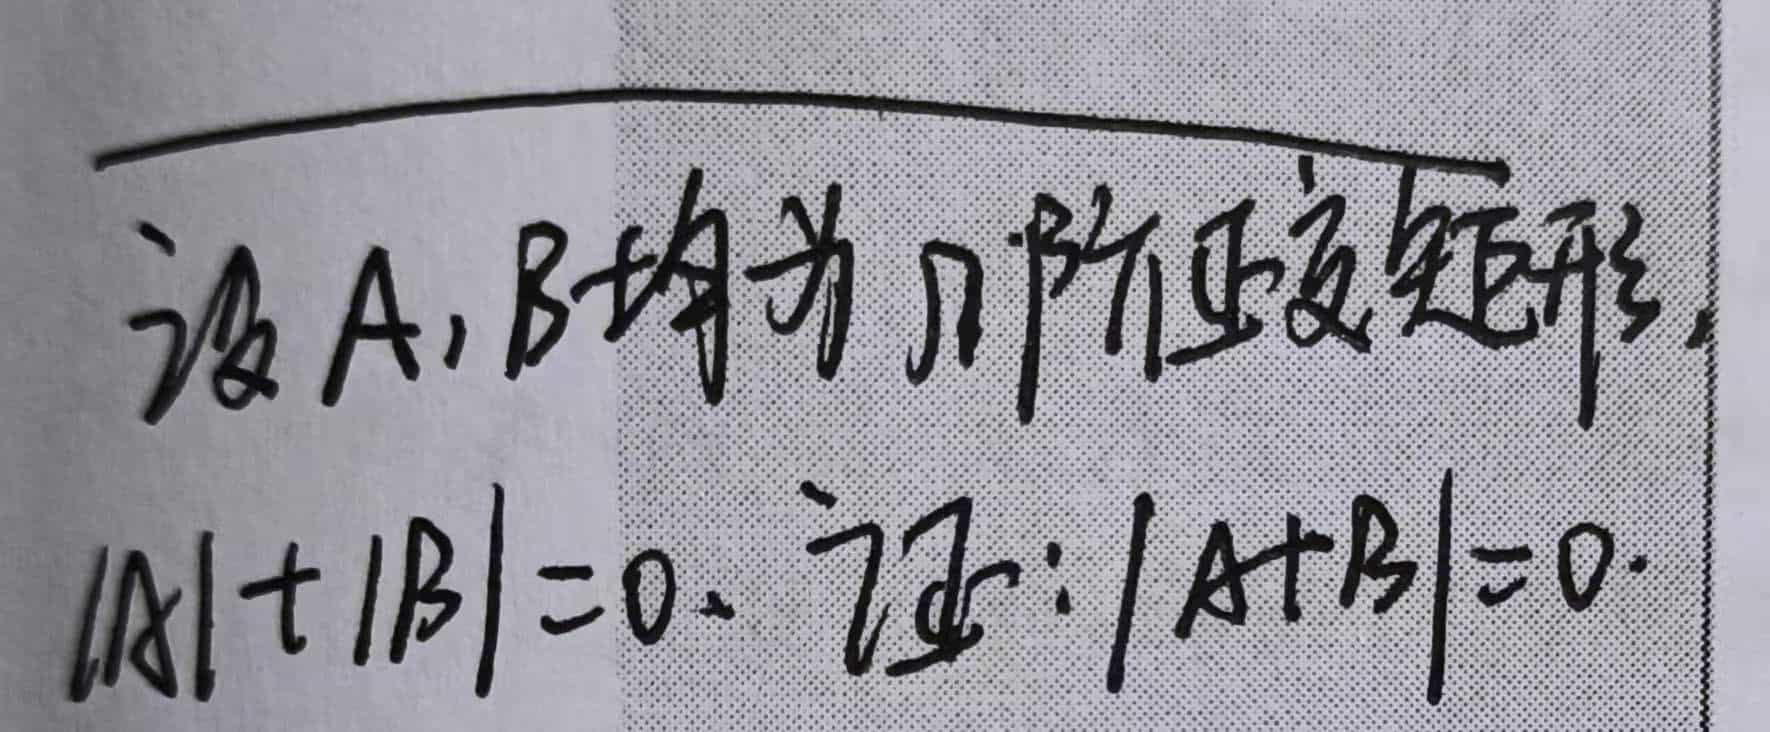 设A,B均为n阶正交矩形,
|A|+|B|=0. 证:|A+B|=0.